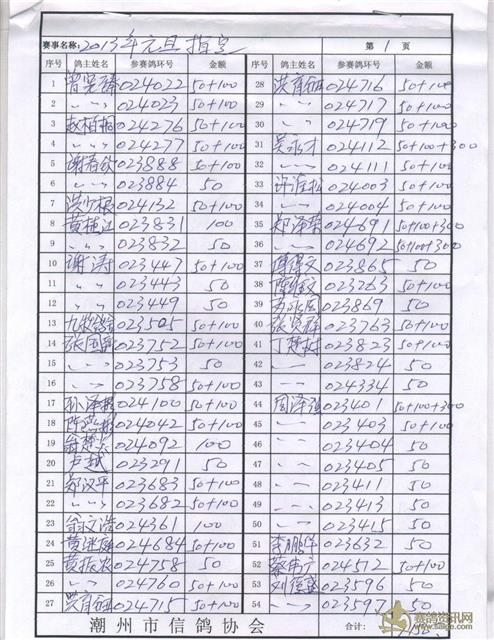 赛事名称: 2013年元旦指定 第 1 页
序号 鸽主姓名 参赛鸽环号 金额 序号 鸽主姓名 参赛鸽环号 金额
1 024022 50+100 28 洪育钿 024716 50+100
2 〃 024023 50+100 29 〃 024717 50+100
3 赵柏桐 024276 50+100 30 〃 024719 50+100
4 〃 024277 50+100 31 吴永才 024112 50+100+300
5 谢春钦 023888 50+100 32 〃 024111 50+100
6 〃 023884 50 33 许淮松 024003 50+100
7 洪少根 024132 50+100 34 〃 024004 50+100
8 黄植江 023831 100 35 郑泽荣 024691 50+100+300
9 〃 023832 50 36 〃 024692 50+100+300
10 谢涛 023447 50+100 37 陈得文 023865 50
11 〃 023443 50 38 023263 50+100
12 〃 023449 50 39 苏永周 023869 50
13 023505 50+100 40 张贤群 023763 50+100
14 张国 023752 50+100 41 丁楚树 023823 50+100
15 〃 023753 50 42 〃 023824 50
16 〃 023758 50+100 43 〃 024334 50
17 孙泽 024100 50+100 44 周泽强 023401 50+100+300
18 陈 024042 50+100 45 〃 023403 50+100
19 翁楚 024092 100 46 〃 023404 50
20 卢越 023291 50 47 〃 023405 50
21 郑汉平 023683 50+100 48 〃 023411 50
22 〃 023682 50+100 49 〃 023413 50
23 翁文浩 024361 100 50 〃 023415 50
24 黄进庭 024684 50+100 51 李鹏伟 023632 50
25 黄振农 024758 50 52 蔡伟广 024512 50+100
26 〃 024760 50+100 53 刘俊盛 023596 50
27 洪育钿 024715 50+100 54 〃 023597 50
潮州市信鸽协会 合计:
赛鸽资讯网